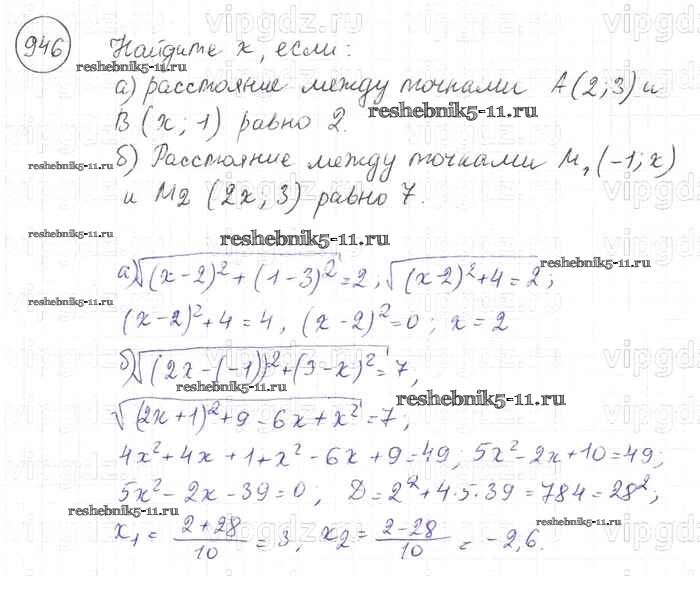 946 Найдите x, если:
а) расстояние между точками A(2;3) и
B(x; 1) равно 2.
б) Расстояние между точками M₁(-1;x)
и M2 (2x; 3) равно 7.
а) √((x-2)²+(1-3)²)=2, √((x-2)²+4)=2;
(x-2)²+4=4, (x-2)²=0; x=2
б) √((2x-(-1))²+(3-x)²)=7,
√((2x+1)²+9-6x+x²)=7;
4x²+4x+1+x²-6x+9=49; 5x²-2x+10=49;
5x²-2x-39=0; D=2²+4·5·39=784=28²;
x₁=(2+28)/10=3, x₂=(2-28)/10=-2,6.
vipgdz.ru
reshebnik5-11.ru
reshebnik5-11.ru
reshebnik5-11.ru
reshebnik5-11.ru
reshebnik5-11.ru
reshebnik5-11.ru
reshebnik5-11.ru
reshebnik5-11.ru
reshebnik5-11.ru
reshebnik5-11.ru
reshebnik5-11.ru